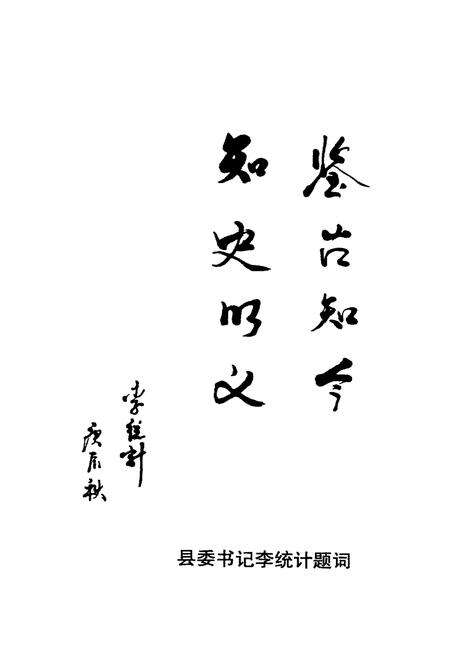 鉴古知今
知史明义
李统计
庚辰秋
县委书记李统计题词